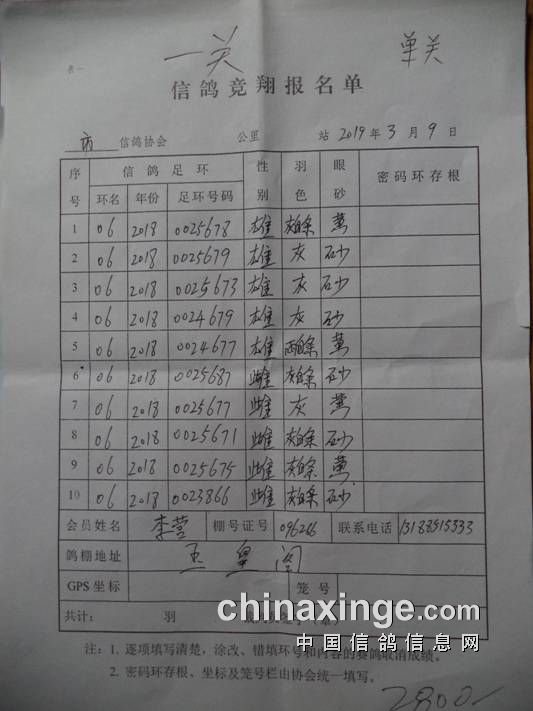 表一
一关 单关
信鸽竞翔报名单
市 信鸽协会 公里 站 2019 年 3 月 9 日
序号 信鸽足环 性别 羽色 眼砂 密码环存根
环名 年份 足环号码
1 06 2018 0025678 雄 灰白条 黄
2 06 2018 0025679 雄 灰 砂
3 06 2018 0025673 雄 灰 砂
4 06 2018 0024679 雄 灰 砂
5 06 2018 0024677 雄 雨白条 黄
6 06 2018 0025687 雌 灰白条 砂
7 06 2018 0025677 雌 灰 黄
8 06 2018 0025671 雌 灰白条 砂
9 06 2018 0025675 雌 灰白条 黄
10 06 2018 0023866 雌 灰白条 砂
会员姓名 李莹 棚号证号 096266 联系电话 13188915333
鸽棚地址 玉皇阁
GPS坐标 笼号
共计: 羽
chinaxinge.com
中国信鸽信息网
注:1. 逐项填写清楚,涂改、错填环号和内容的赛鸽取消成绩。
2. 密码环存根、坐标及笼号栏由协会统一填写。
2800-